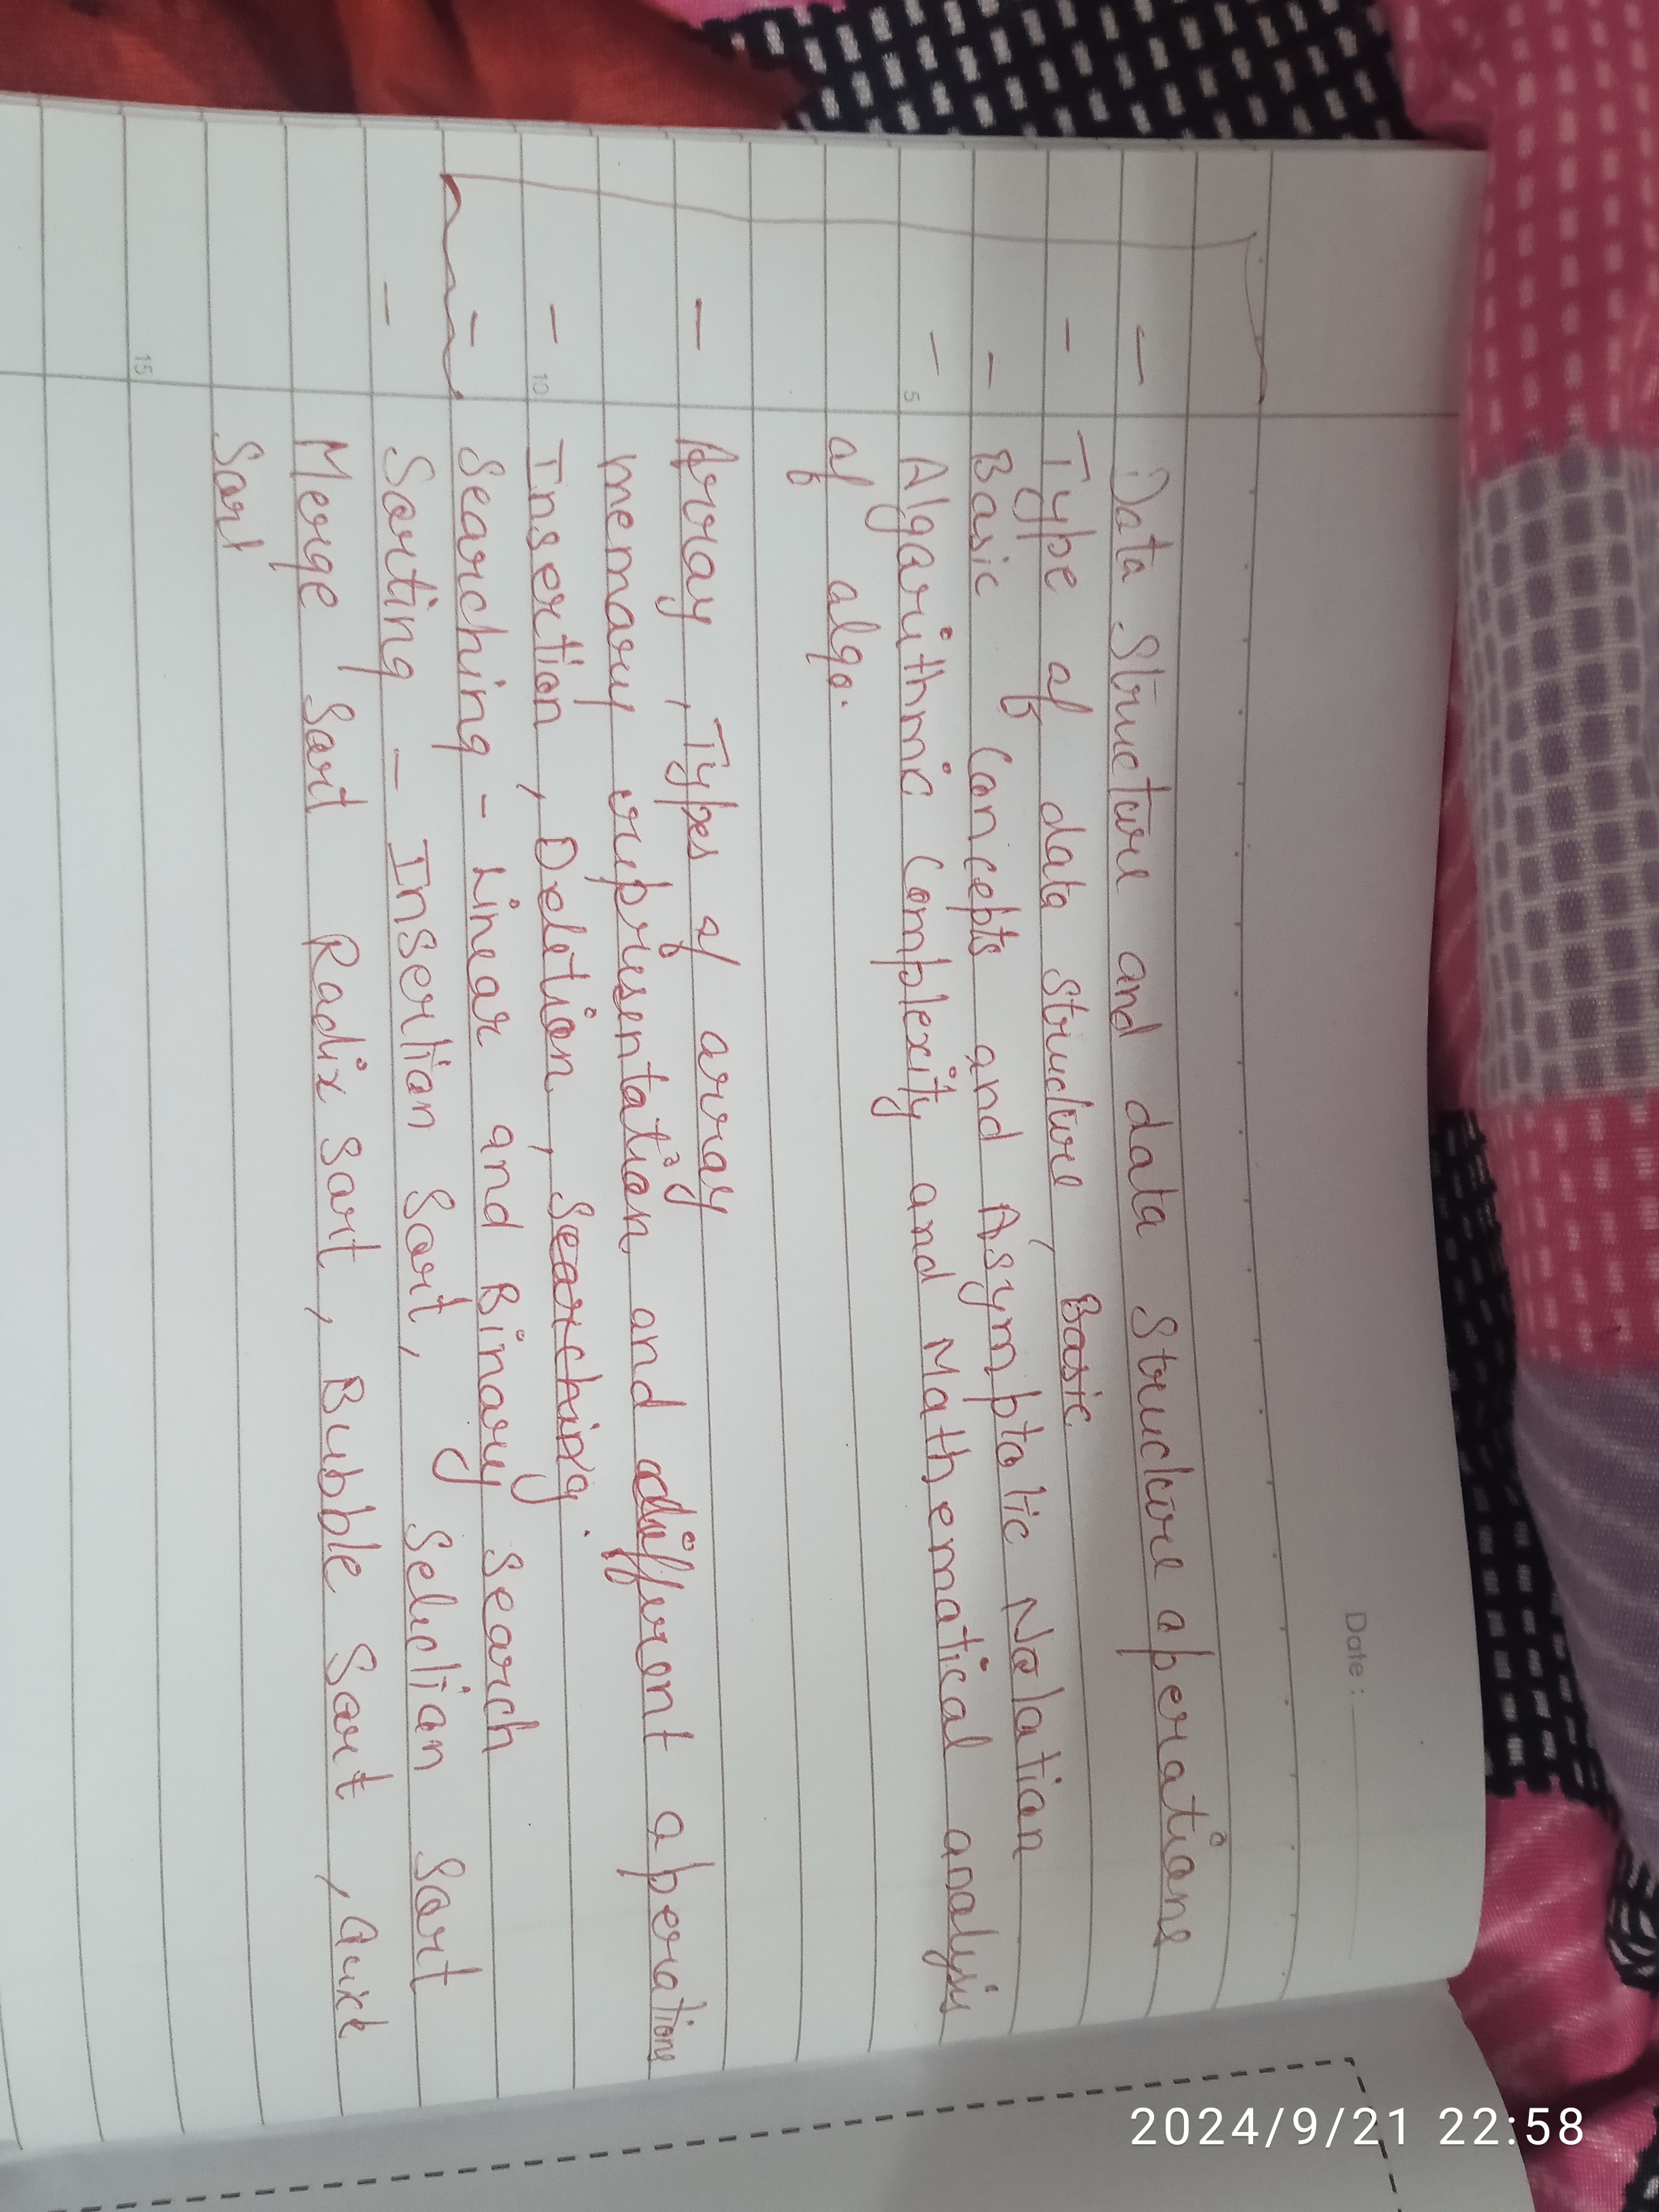 Date :
- Data Structure and data Structure operations
- Type of data structure, Basic
- Basic Concepts and Asymptotic Notation
- Algorithmic Complexity and Mathematical analysis
of algo.
- Array, Types of array
memory representation and different operations
- Insertion, Deletion, Searching.
- Searching - Linear and Binary Search
- Sorting - Insertion Sort, Selection Sort
Merge Sort Radix Sort, Bubble Sort, Quick
Sort
5
10
15
2024/9/21 22:58